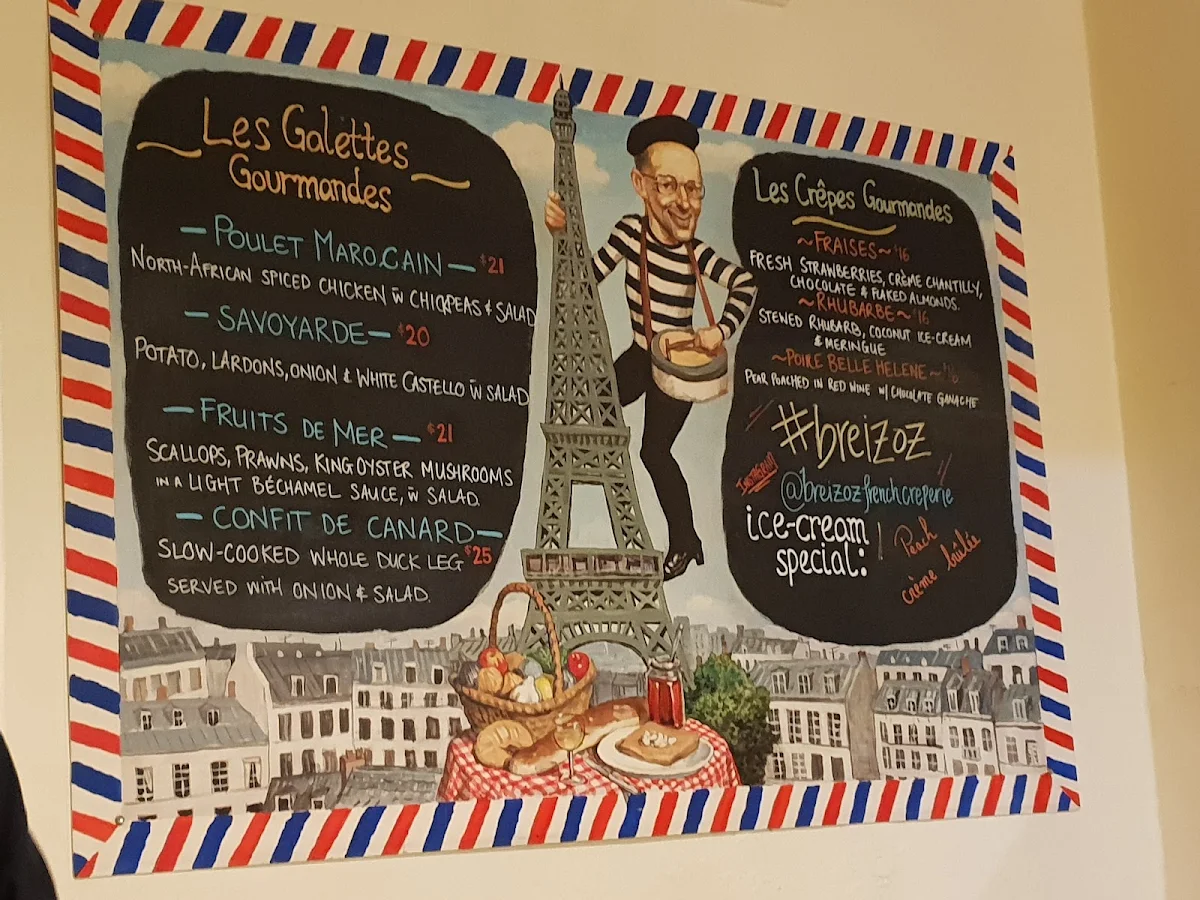 Les Galettes
Gourmandes
- POULET MAROCAIN - $21
NORTH-AFRICAN SPICED CHICKEN W̄ CHICKPEAS & SALAD
- SAVOYARDE - $20
POTATO, LARDONS, ONION & WHITE CASTELLO W̄ SALAD
- FRUITS DE MER - $21
SCALLOPS, PRAWNS, KING OYSTER MUSHROOMS
IN A LIGHT BÉCHAMEL SAUCE, W̄ SALAD.
- CONFIT DE CANARD -
SLOW-COOKED WHOLE DUCK LEG $25
SERVED WITH ONION & SALAD.
Les Crêpes Gourmandes
~FRAISES~ $16
FRESH STRAWBERRIES, CRÈME CHANTILLY,
CHOCOLATE & FLAKED ALMONDS.
~RHUBARBE~ $16
STEWED RHUBARB, COCONUT ICE-CREAM
& MERINGUE
~POIRE BELLE HELENE~
PEAR POACHED IN RED WINE W/ CHOCOLATE GANACHE
#breizoz
INSTAGRAM
@breizozfrenchcreperie
ice-cream
special:
Peach
crème brûlée